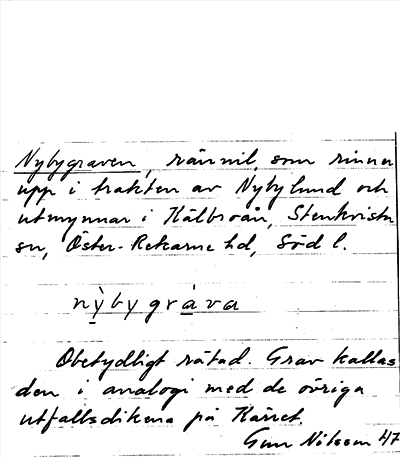 Nybygraven, rännil, som rinner
upp i trakten av Nybylund och
utmynnar i Hälbroån, Stenkvista
sn, Öster-Rekarne hd, Söd l.
nỳbygráva
Obetydligt rätad. Grav kallas
den i analogi med de övriga
utfallsdikena på Kärret.
Gun Nilsson 47